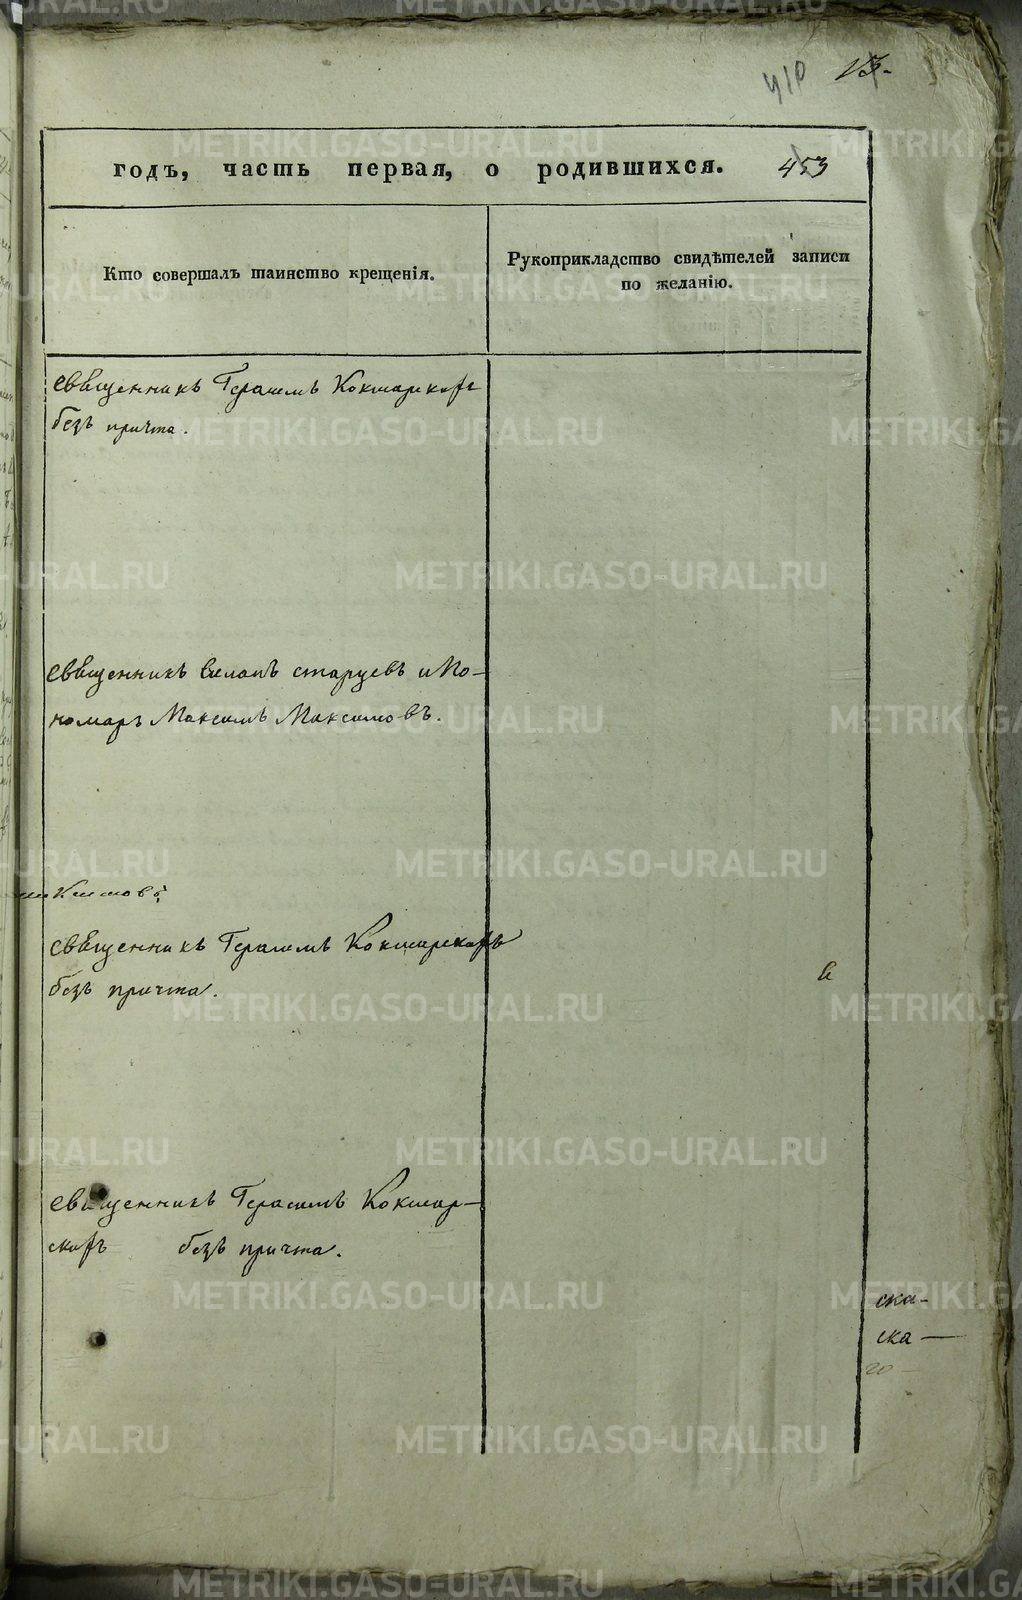 410 13.
годъ, часть первая, о родившихся. 453
Кто совершалъ таинство крещенія.
Рукоприкладство свидѣтелей записи
по желанію.
священникъ Герасимъ Кокшарскохъ
безъ причта.
священникъ старцевъ и По-
номарь Максимъ Максимовъ.
священникъ Герасимъ Кокшарскохъ
безъ причта.
священникъ Герасимъ Кокшар-
скохъ безъ причта.
ска-
ска-
METRIKI.GASO-URAL.RU